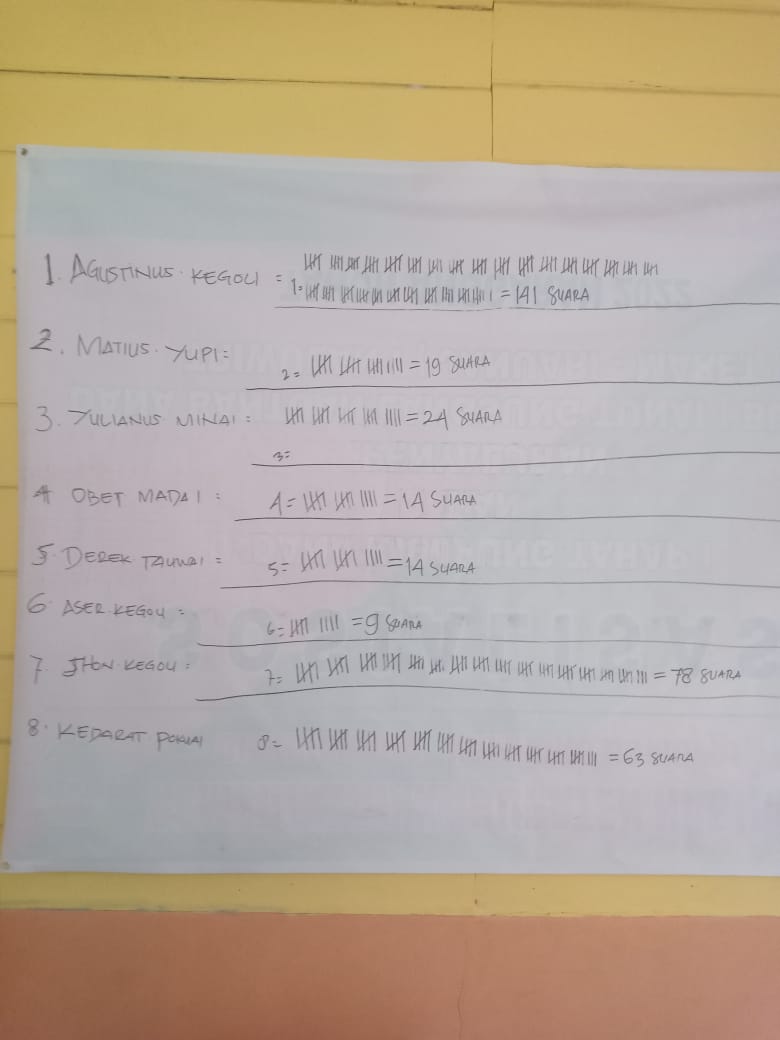 1. AGUSTINUS. KEGOU =
1. = 141 SUARA
2. MATIUS. YUPI =
2 = = 19 SUARA
3. YULIANUS MINAI : = 24 SUARA
3 =
4 OBET MADAI : 4 = = 14 SUARA
5. DEREK : 5 = = 14 SUARA
6 ASER. KEGOU = 6 = = 9 SUARA
7. JHON. KEGOU : 7 = = 78 SUARA
8. KEDARAT 8 = = 63 SUARA